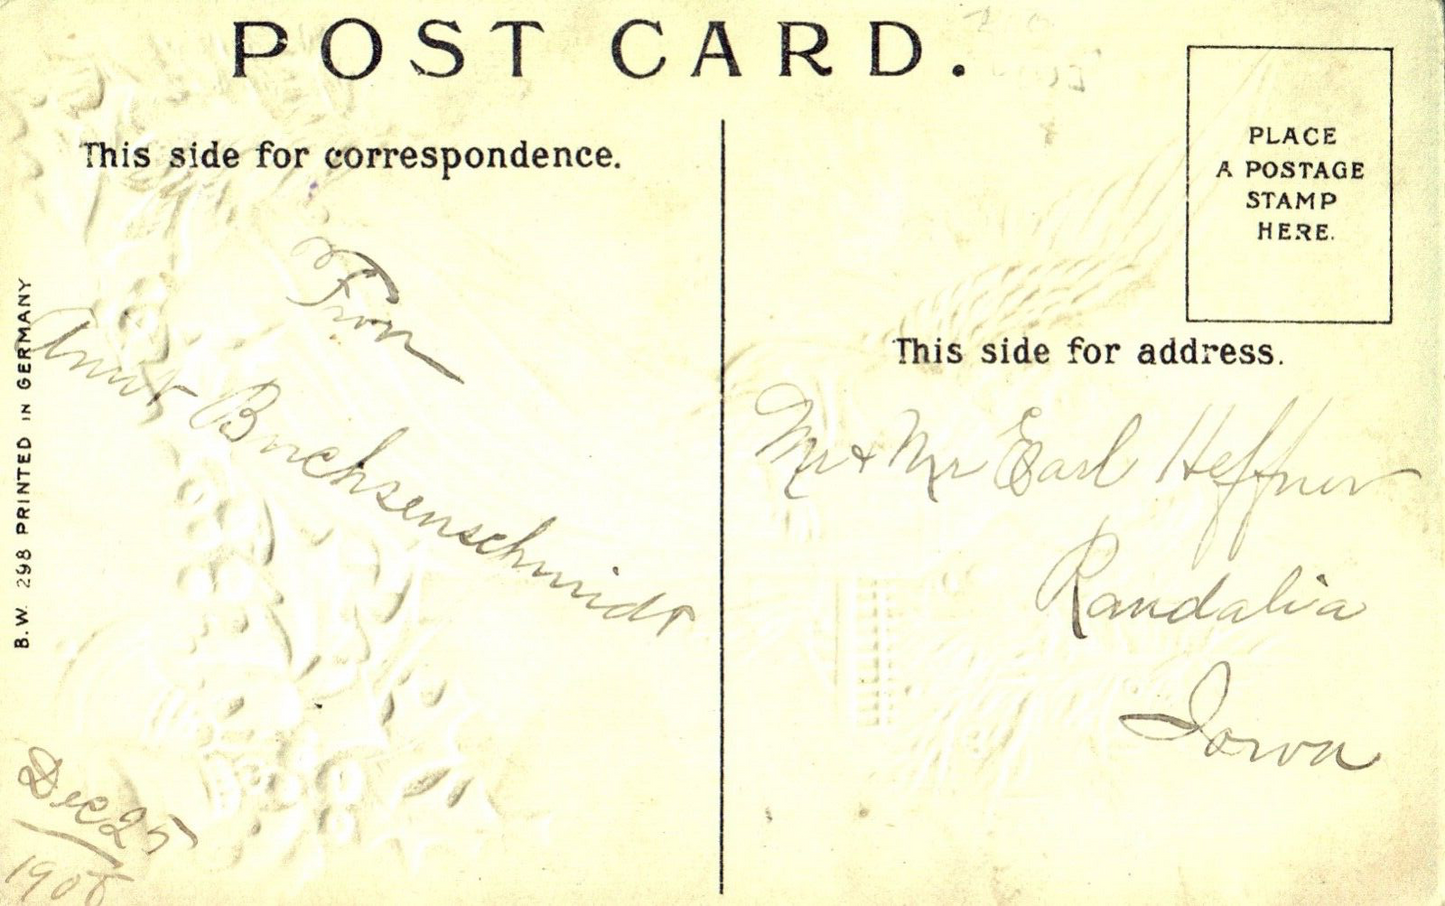 POST CARD.
This side for correspondence.
From
Aunt Buchsenschmidt
Dec 25
B.W. 298 PRINTED IN GERMANY
PLACE
A POSTAGE
STAMP
HERE.
This side for address.
Mr + Mr Earl Heffner
Randalia
Iowa